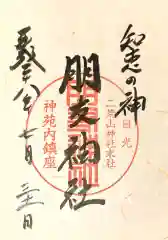 知恵の神
日光
二荒山神社末社
朋友神社
神苑内鎮座
平成二八年七月三一日